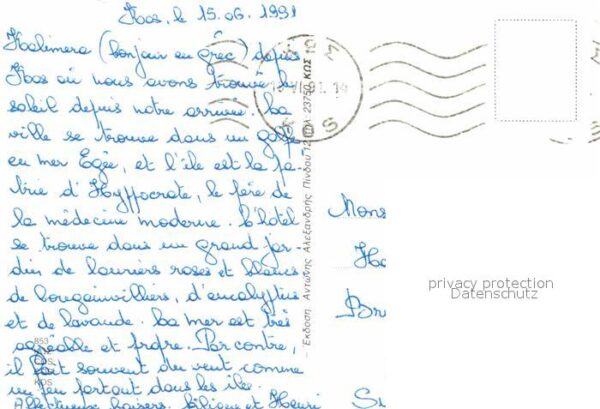 Kos, le 15.06.1991
Kalimera (bonjour en grec) depuis
Kos où nous avons trouvé le
soleil depuis notre arrivée. La
ville se trouve dans un golfe
en mer Egée, et l'île est la pa-
trie d'Hyppocrate, le père de
la médecine moderne. L'hôtel
se trouve dans un grand jar-
din de lauriers roses et blancs
de bougainvilliers, d'eucalyptus
et de lavande. La mer est très
agréable et propre. Par contre,
il fait souvent du vent comme
un peu partout dans les îles.
Affectueux baisers. et Henri
Mons
Ha
Bru
Su
Εκδοση Αντωνης Αλεξανδρής Πινδου 23750 ΚΩΣ
853
KOS
privacy protection
Datenschutz